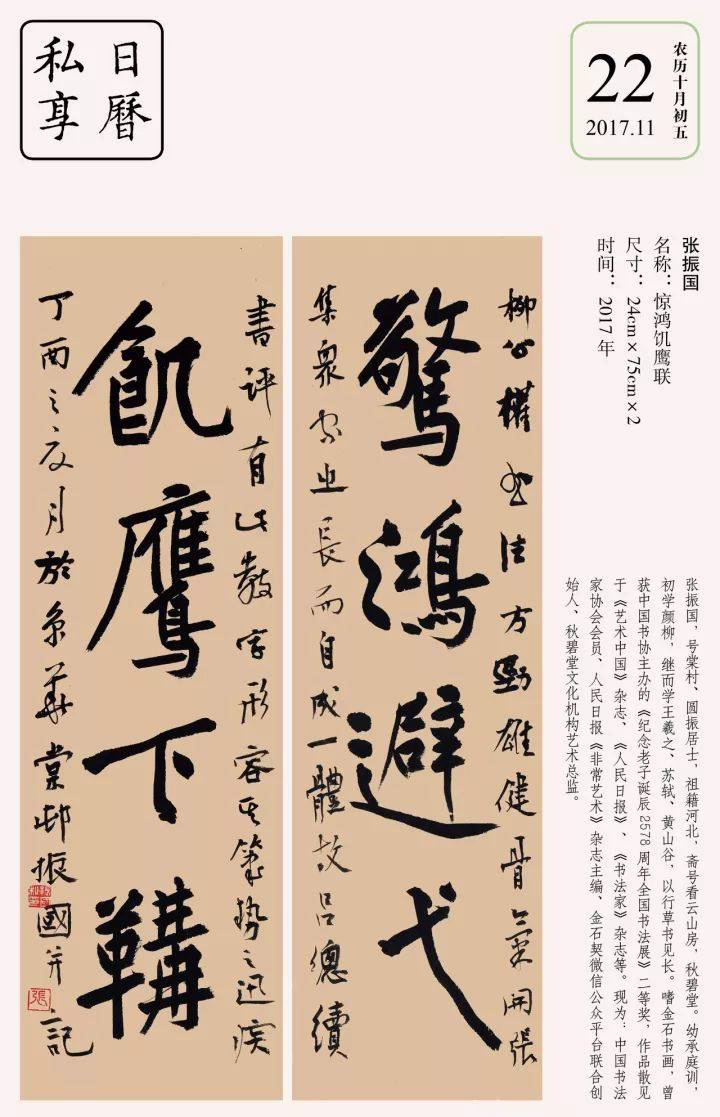 日曆
私享
22
2017.11
农历十月初五
张振国
名称：惊鸿饥鹰联
尺寸：24cm×75cm×2
时间：2017年
张振国，号棠村、圆振居士，祖籍河北，斋号看云山房，秋碧堂。幼承庭训，
初学颜柳，继而学王羲之、苏轼、黄山谷，以行草书见长。嗜金石书画，曾
获中国书协主办的《纪念老子诞辰2578周年全国书法展》二等奖，作品散见
于《艺术中国》杂志、《人民日报》、《书法家》杂志等。现为：中国书法
家协会会员、人民日报《非常艺术》杂志主编、金石契微信公众平台联合创
始人、秋碧堂文化机构艺术总监。
柳公權书法方勁雄健骨氣開張
驚鴻避弋
集衆家之長而自成一體故吕總續
書評有此數字形容其筆勢之迅疾
飢鷹下鞲
丁酉之夏月於京華棠邨振國并記
張